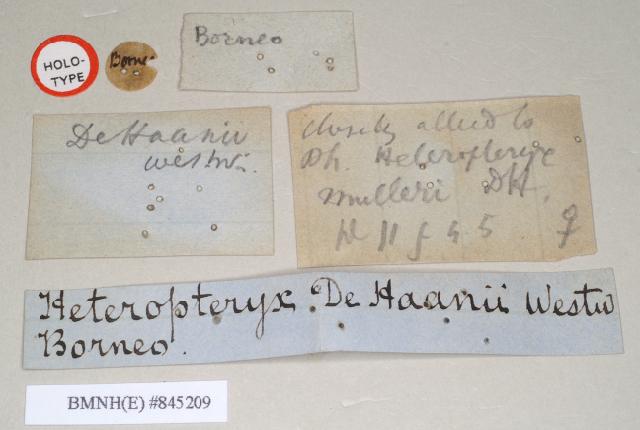 HOLO-
TYPE
Borneo
Borneo
De Haanii
Westw.
closely allied to
Ph. Heteropteryx
mulleri DH.
pl 11 f 4 5 ♀
Heteropteryx De Haanii Westw
Borneo.
BMNH(E) #845209